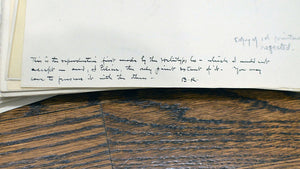 copy of 1st printing
rejected.
This is the reproduction first made by the Meriden Co – which I would not
accept and, I believe, the only print extant of it. You may
care to preserve it with the others – B.R.